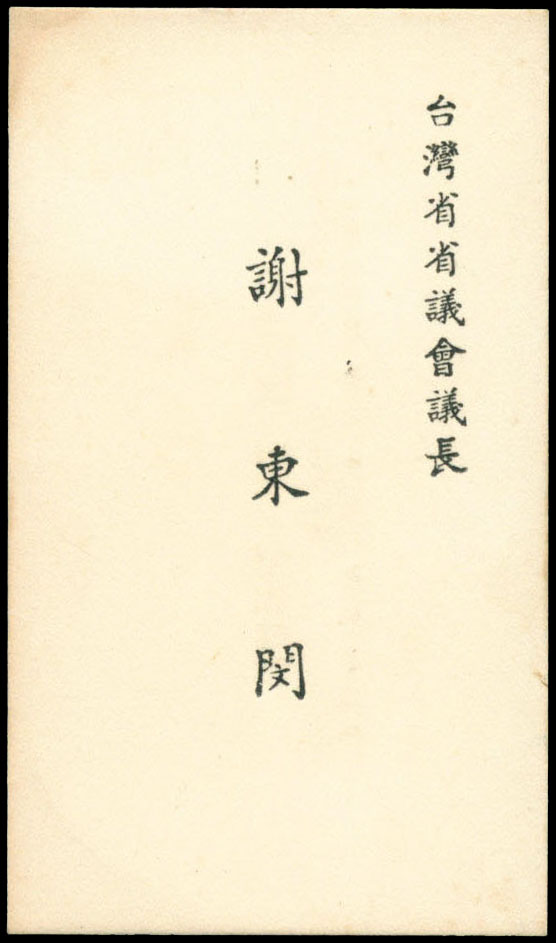 台灣省省議會議長
謝東閔